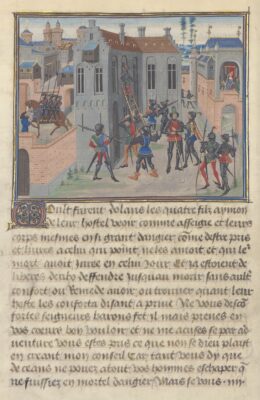 Moult furent dolans les quatre filz aymon
de leur hostel veoir comme assegie et leurs
corps mesmes en si grant dangier come destre pris
et livres a celui qui point ne les amoit et qui le
mort avoit juree en celui jour Et la estoient de
liberes deulx deffendre jusqua mort sans ault
confort ou remede avoir ou trouver quant leur
hoste les conforta disant a prive Ne vous descon
fortes seigneurs barons fet il mais prenes en
vos coeurs bon vouloir et ne me acuses se par ad
venture vous estes pris ce que non se dieu plaist
en creant mon conseil Car tant vous dy que
de ceans ne pouez a tout vos hommes eschaper q
ne fuissiez en mortel dangier Mais se vous